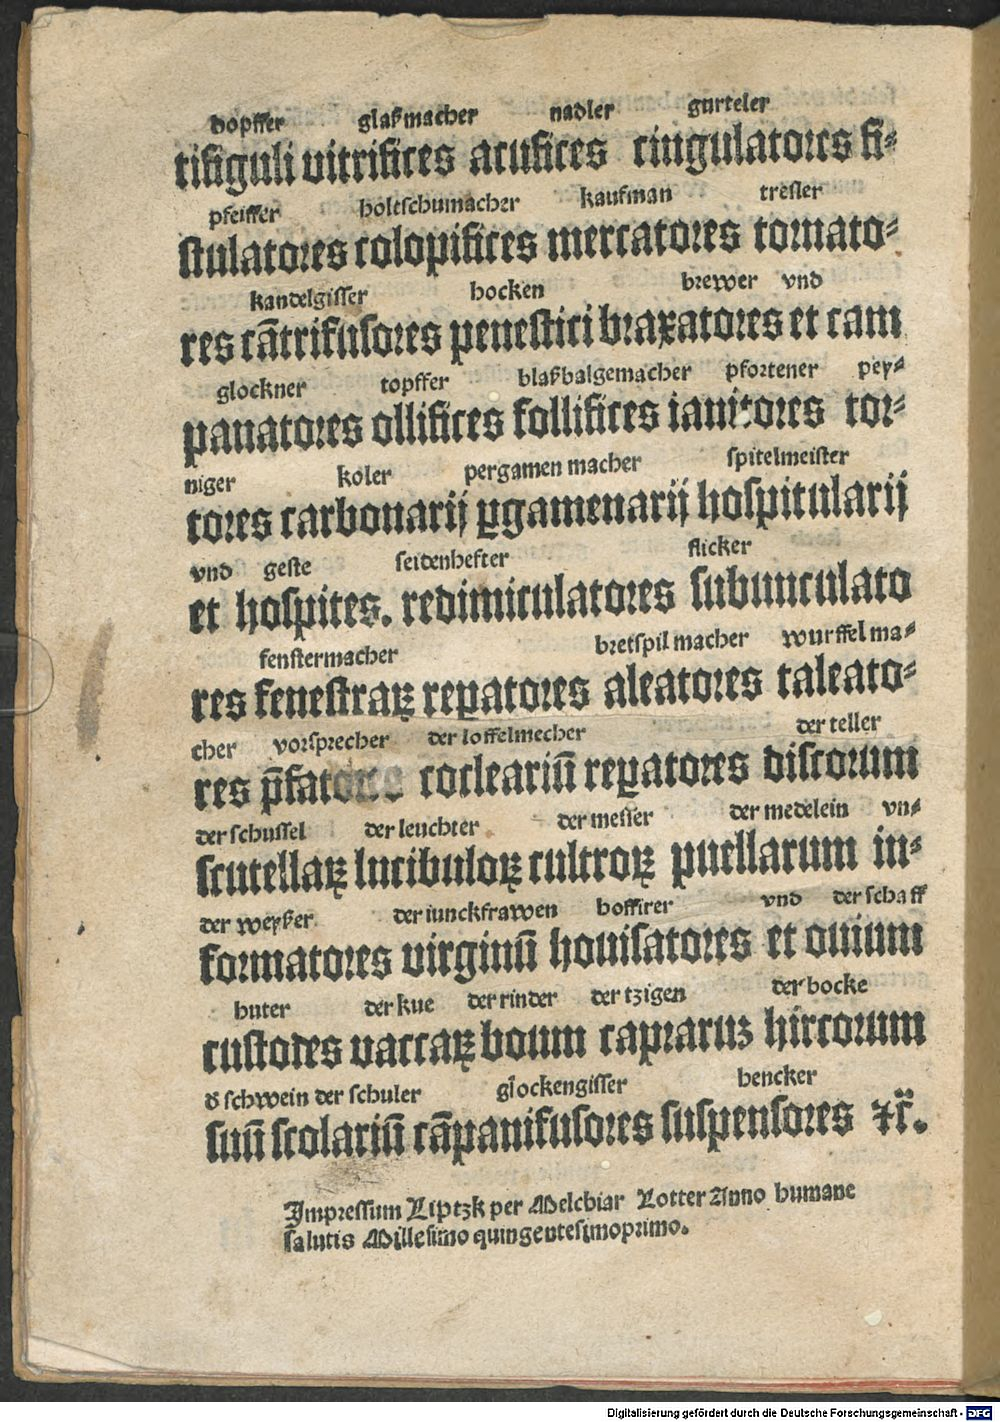 dopffer glaßmacher nadler gurteler
tifiguli vitrifices acufices cingulatores fi⸗
pfeiffer holtschumacher kaufman tresler
stulatores colopifices mercatores tornato⸗
kandelgisser hocken brewer vnd
res cātrifusores penestici braxatores et cam
glockner topffer blaßbalgemacher pfortener pey⸗
panatores ollifices follifices ianitores tor⸗
niger koler pergamen macher spitelmeister
tores carbonarij ꝑgamenarij hospitularij
vnd geste seidenhefter flicker
et hospites. redimiculatores subunculato
fenstermacher bretspil macher wurffel ma⸗
res fenestraꝝ reꝑatores aleatores taleato⸗
cher vorsprecher der loffelmecher der teller
res p̄fatores cocleariū reꝑatores discorum
der schussel der leuchter der messer der medelein vn⸗
scutellaꝝ lucibuloꝝ cultroꝝ puellarum in⸗
der weyßer der iunckfrawen hoffirer vnd der schaff
formatores virginū houisatores et ouium
huter der kue der rinder der tzigen der bocke
custodes vaccaꝝ boum capraruz hircorum
d schwein der schuler glockengisser hencker
suū scolariū cāpanifusores suspensores ⁊c̈.
Impressum Liptzk per Melchiar Lotter Anno humane
salutis Millesimo quingentesimoprimo.
Digitalisierung gefördert durch die Deutsche Forschungsgemeinschaft - DFG